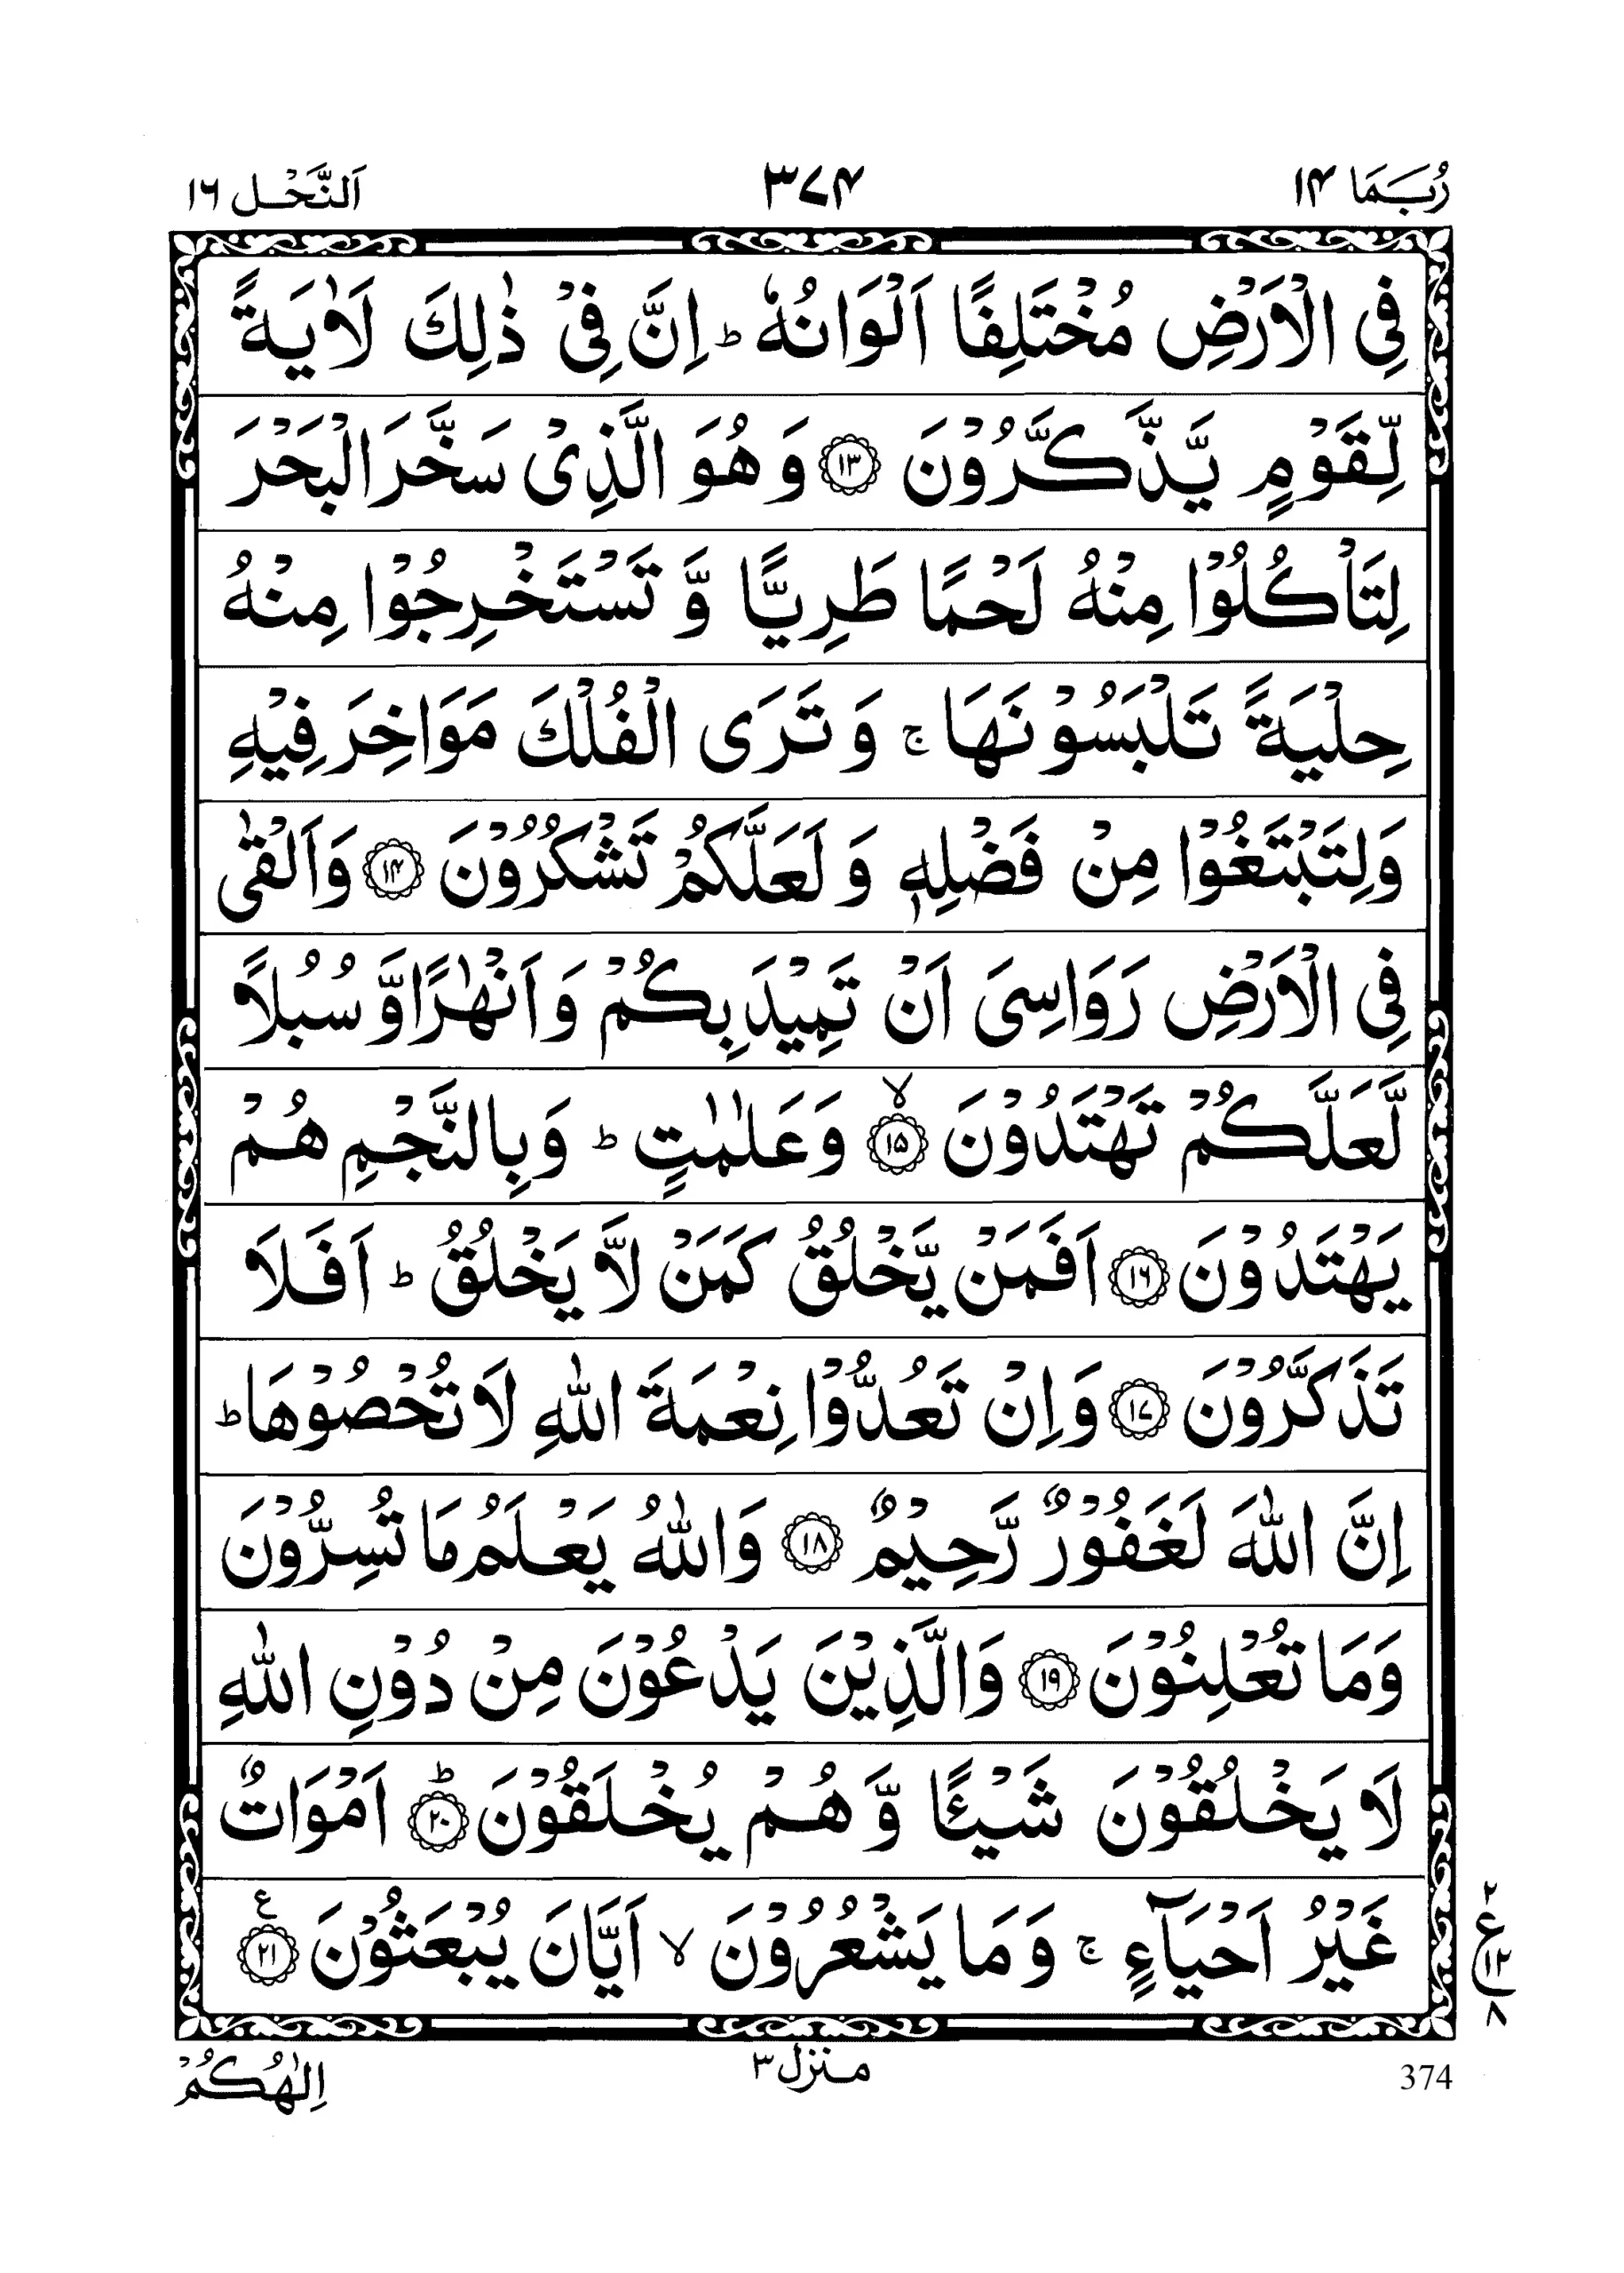 رُبَمَا ۱۴ ۳۷۴ اَلنَّحْل ۱۶
فِی الْاَرْضِ مُخْتَلِفًا اَلْوَانُهٗ ؕ اِنَّ فِیْ ذٰلِكَ لَاٰیَةً
لِّقَوْمٍ یَّذَّكَّرُوْنَ ۝۱۳ وَ هُوَ الَّذِیْ سَخَّرَ الْبَحْرَ
لِتَاْكُلُوْا مِنْهُ لَحْمًا طَرِیًّا وَّ تَسْتَخْرِجُوْا مِنْهُ
حِلْیَةً تَلْبَسُوْنَهَا ۚ وَ تَرَی الْفُلْكَ مَوَاخِرَ فِیْهِ
وَلِتَبْتَغُوْا مِنْ فَضْلِهٖ وَ لَعَلَّكُمْ تَشْكُرُوْنَ ۝۱۴ وَاَلْقٰی
فِی الْاَرْضِ رَوَاسِیَ اَنْ تَمِیْدَ بِكُمْ وَاَنْهٰرًا وَّ سُبُلًا
لَّعَلَّكُمْ تَهْتَدُوْنَ ۝۱۵ۙ وَعَلٰمٰتٍ ؕ وَبِالنَّجْمِ هُمْ
یَهْتَدُوْنَ ۝۱۶ اَفَمَنْ یَّخْلُقُ كَمَنْ لَّا یَخْلُقُ ؕ اَفَلَا
تَذَكَّرُوْنَ ۝۱۷ وَاِنْ تَعُدُّوْا نِعْمَةَ اللّٰهِ لَا تُحْصُوْهَا ؕ
اِنَّ اللّٰهَ لَغَفُوْرٌ رَّحِیْمٌ ۝۱۸ وَاللّٰهُ یَعْلَمُ مَا تُسِرُّوْنَ
وَمَا تُعْلِنُوْنَ ۝۱۹ وَالَّذِیْنَ یَدْعُوْنَ مِنْ دُوْنِ اللّٰهِ
لَا یَخْلُقُوْنَ شَیْـًٔا وَّ هُمْ یُخْلَقُوْنَ ۝۲۰ؕ اَمْوَاتٌ
غَیْرُ اَحْیَآءٍ ۚ وَمَا یَشْعُرُوْنَ ۙ اَیَّانَ یُبْعَثُوْنَ ۝۲۱ع
۲
ع
۱۲
۸
374 منزل ۳ اِلٰهُكُمْ